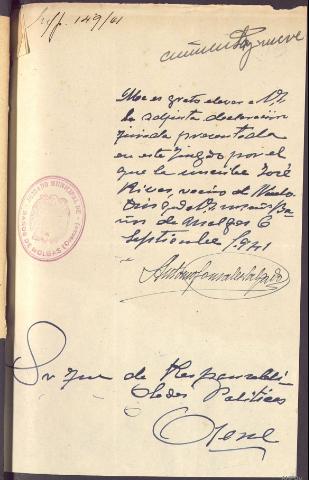 149/41
cincuenta y nueve
Me es grato elevar a V.I.
la adjunta declaración
jurada presentada
en este Juzgado por el
que la suscribe José
Rivas, vecino de
Dios gde. a V.I. muchos
Baños de Molgas 6
Septiembre 1941
Antonio Gonzalez Salgado
JUZGADO MUNICIPAL DE
BAÑOS DE MOLGAS (Orense)
Sr Juez de Responsabili-
dades Politicas
Orense